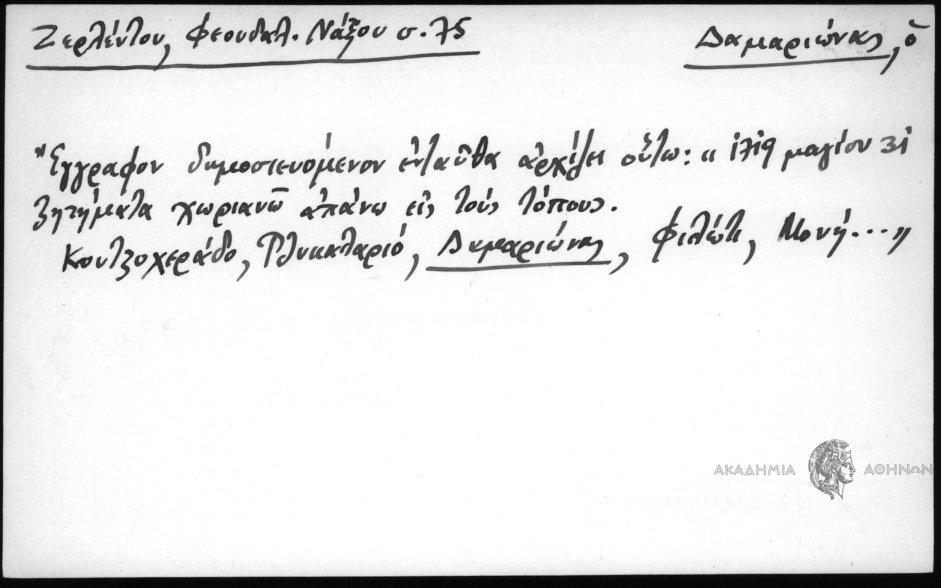 Ζερλέντου, Φεουδαλ. Νάξου σ. 75
Δαμαριώνας, ὁ
Ἔγγραφον δημοσιευόμενον ἐνταῦθα ἀρχίζει οὕτω: „ 1719 μαγίου 31
ζητήματα χωριανῶ ἀπάνω εἰς τούς τόπους.
Κουτζοχεράδο, Δαμαριώνας, Φιλώτι, Μονή...„
ΑΚΑΔΗΜΙΑ ΑΘΗΝΩΝ